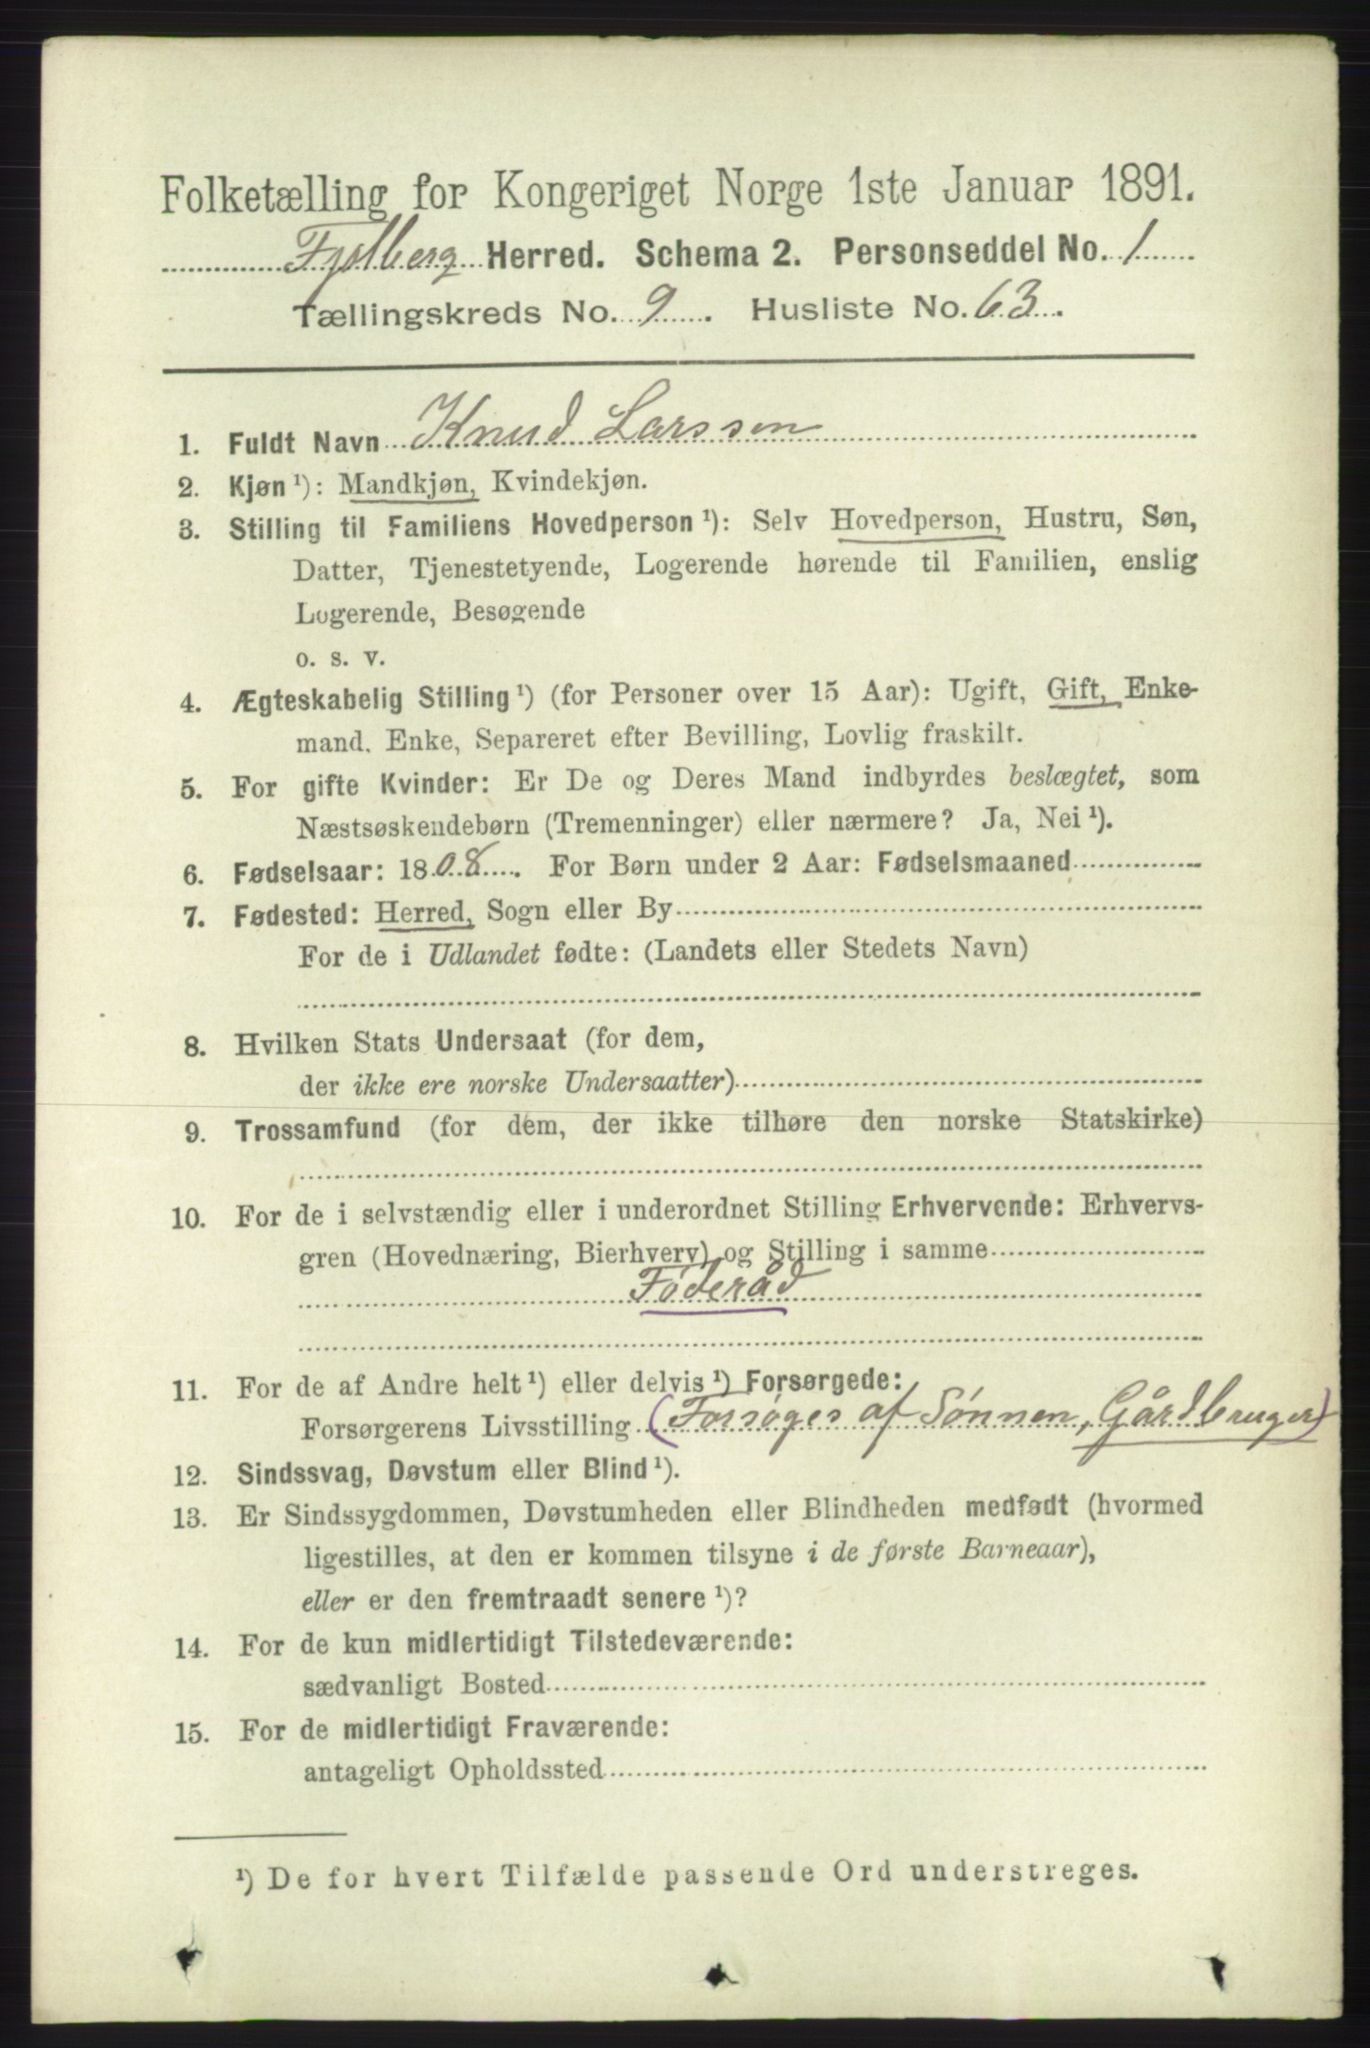 Folketælling for Kongeriget Norge 1ste Januar 1891.
Fjelberg Herred. Schema 2. Personseddel No. 1
Tællingskreds No. 9. Husliste No. 63.
1. Fuldt Navn Knud Larssen
2. Kjøn ¹): Mandkjøn, Kvindekjøn.
3. Stilling til Familiens Hovedperson ¹): Selv Hovedperson, Hustru, Søn,
Datter, Tjenestetyende, Logerende hørende til Familien, enslig
Logerende, Besøgende
o. s. v.
4. Ægteskabelig Stilling ¹) (for Personer over 15 Aar): Ugift, Gift, Enke-
mand, Enke, Separeret efter Bevilling, Lovlig fraskilt.
5. For gifte Kvinder: Er De og Deres Mand indbyrdes beslægtet, som
Næstsøskendebørn (Tremenninger) eller nærmere? Ja, Nei ¹).
6. Fødselsaar: 1808. For Børn under 2 Aar: Fødselsmaaned
7. Fødested: Herred, Sogn eller By
For de i Udlandet fødte: (Landets eller Stedets Navn)
8. Hvilken Stats Undersaat (for dem,
der ikke ere norske Undersaatter)
9. Trossamfund (for dem, der ikke tilhøre den norske Statskirke)
10. For de i selvstændig eller i underordnet Stilling Erhvervende: Erhvervs-
gren (Hovednæring, Bierhverv) og Stilling i samme
Føderåd
11. For de af Andre helt ¹) eller delvis ¹) Forsørgede:
Forsørgerens Livsstilling (Forsøges af Sønnen, Gårdbruger)
12. Sindssvag, Døvstum eller Blind ¹).
13. Er Sindssygdommen, Døvstumheden eller Blindheden medfødt (hvormed
ligestilles, at den er kommen tilsyne i de første Barneaar),
eller er den fremtraadt senere ¹)?
14. For de kun midlertidigt Tilstedeværende:
sædvanligt Bosted
15. For de midlertidigt Fraværende:
antageligt Opholdssted
¹) De for hvert Tilfælde passende Ord understreges.